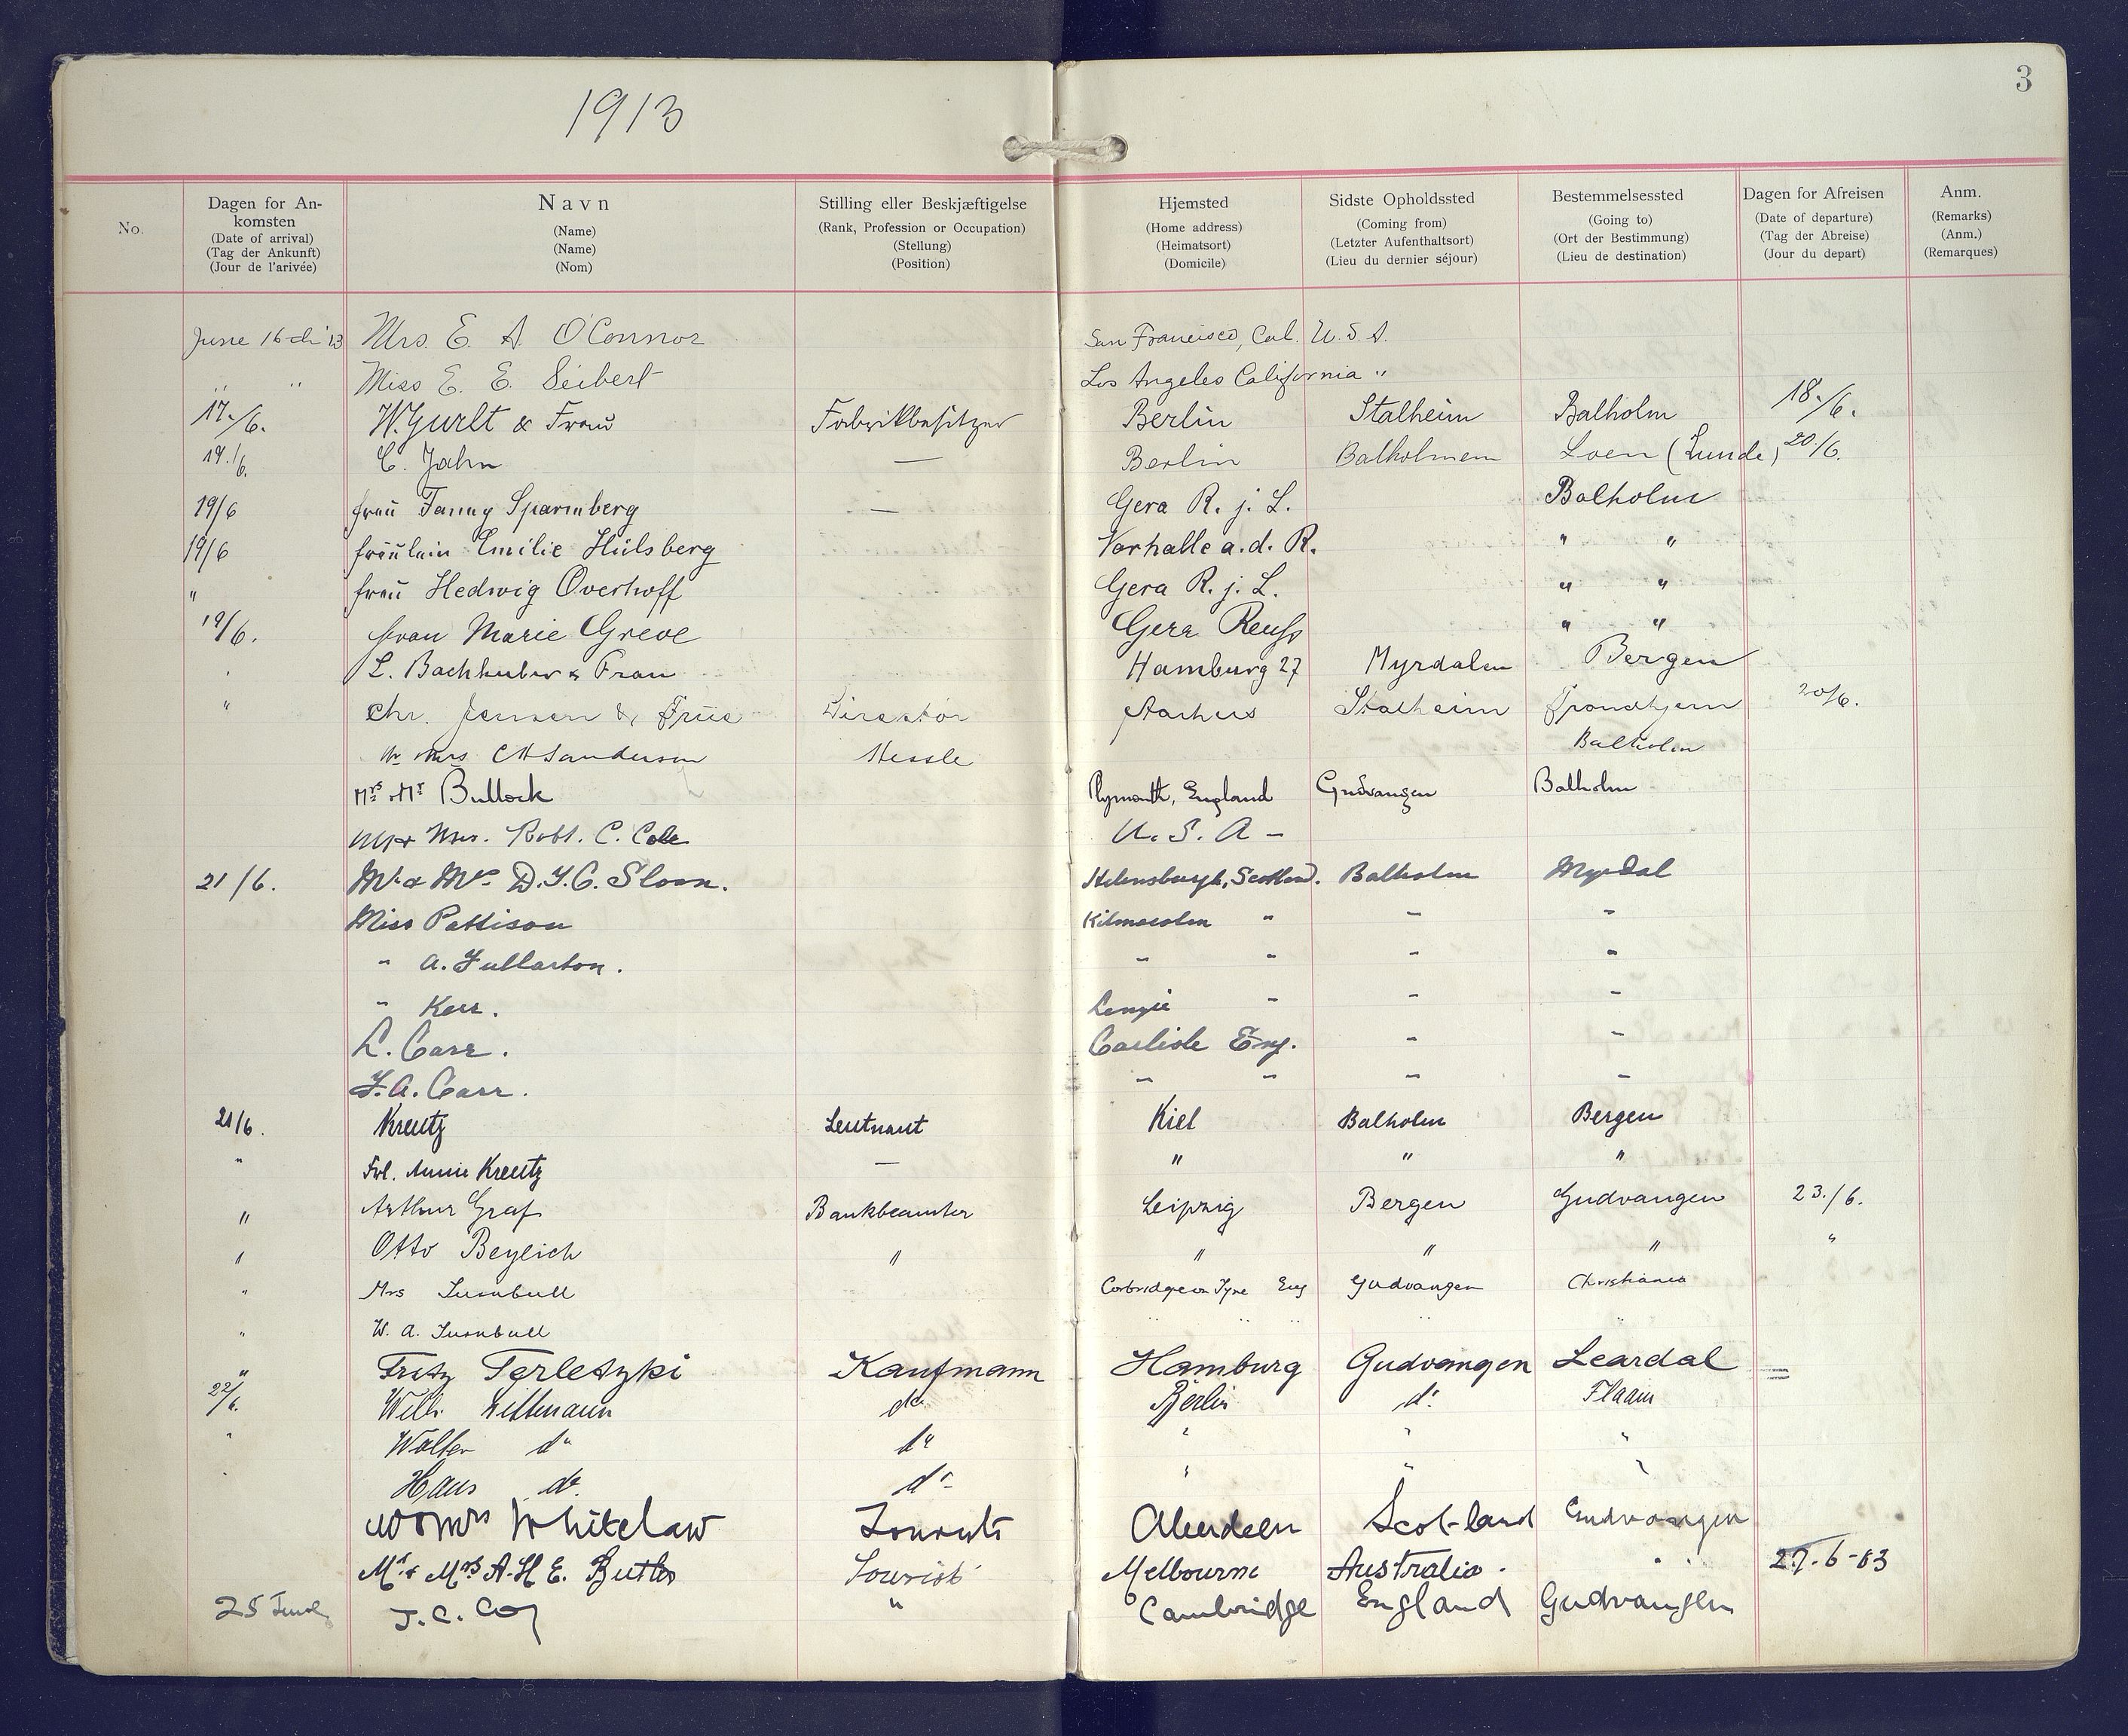 1913
3
No.
Dagen for An-
komsten
(Date of arrival)
(Tag der Ankunft)
(Jour de l'arivée)
Navn
(Name)
(Name)
(Nom)
Stilling eller Beskjæftigelse
(Rank, Profession or Occupation)
(Stellung)
(Position)
Hjemsted
(Home address)
(Heimatsort)
(Domicile)
Sidste Opholdssted
(Coming from)
(Letzter Aufenthaltsort)
(Lieu du dernier séjour)
Bestemmelsessted
(Going to)
(Ort der Bestimmung)
(Lieu de destination)
Dagen for Afreisen
(Date of departure)
(Tag der Abreise)
(Jour du depart)
Anm.
(Remarks)
(Anm.)
(Remarques)
June 16th '13 Mrs. E. A. O'Connor San Francisco, Cal. U.S.A.
" " Miss E. E. Seibert Los Angeles California "
17./6. W. Gurlt & Frau Fabrikbesitzer Berlin Stalheim Balholm 18./6.
19./6. C. Jahn — Berlin Balholmem Loen (Lunde) 20/6.
19/6 frau Fanny Sparmberg — Gera R. j. L. Balholm
19/6 fräulein Emilie Hülsberg Vorhalle a.d. R. " "
" frau Hedwig Overhoff Gera R. j. L. " "
19/6. frau Marie Greve Gera Reuss " "
L. Bachhuber & Frau Hamburg 27 Myrdalen Bergen
" Chr. Jensen & Frue Direktör Aarhus Stalheim Trondhjem 20/6.
Mr Mrs C H Sanderson Hessle Balholm
Mrs & Mr Bullock Plymouth, England Gudvangen Balholm
Mr & Mrs. Robt. C. Cole U. S. A -
21/6. Mr & Mrs D. Y. C. Sloan. Helensburgh, Scotland. Balholm Myrdal
Miss Pattison Kilmacolm " " "
" A. Fullarton. " " " "
" Kerr. Lenzie " " "
L. Carr. Carlisle Eng. " "
F. A. Carr. " " " "
21/6. Kreutz Leutnant Kiel Balholm Bergen
" Frl. Annie Kreutz — " " "
" Arthur Graf Bankbeamter Leipzig Bergen Gudvangen 23./6.
" Otto Beylich " " " " "
" Mrs Turnbull Corbridge on Tyne Eng Gudvangen Christiania
" W. A. Turnbull " " " " "
" Fritz Terletzki Kaufmann Hamburg Gudvangen Leardal
22/6. Willi Wittmann do. Berlin do. Flaam
" Walter do do " " "
" Hans do. do " " "
Mr & Mrs Whitelaw Tourists Aberdeen Scotland Gudvangen
Mr. & Mrs A. H E. Butler Tourist Melbourne Australia. " 27.-6-13
25 June J. C. Coy " Cambridge England Gudvangen